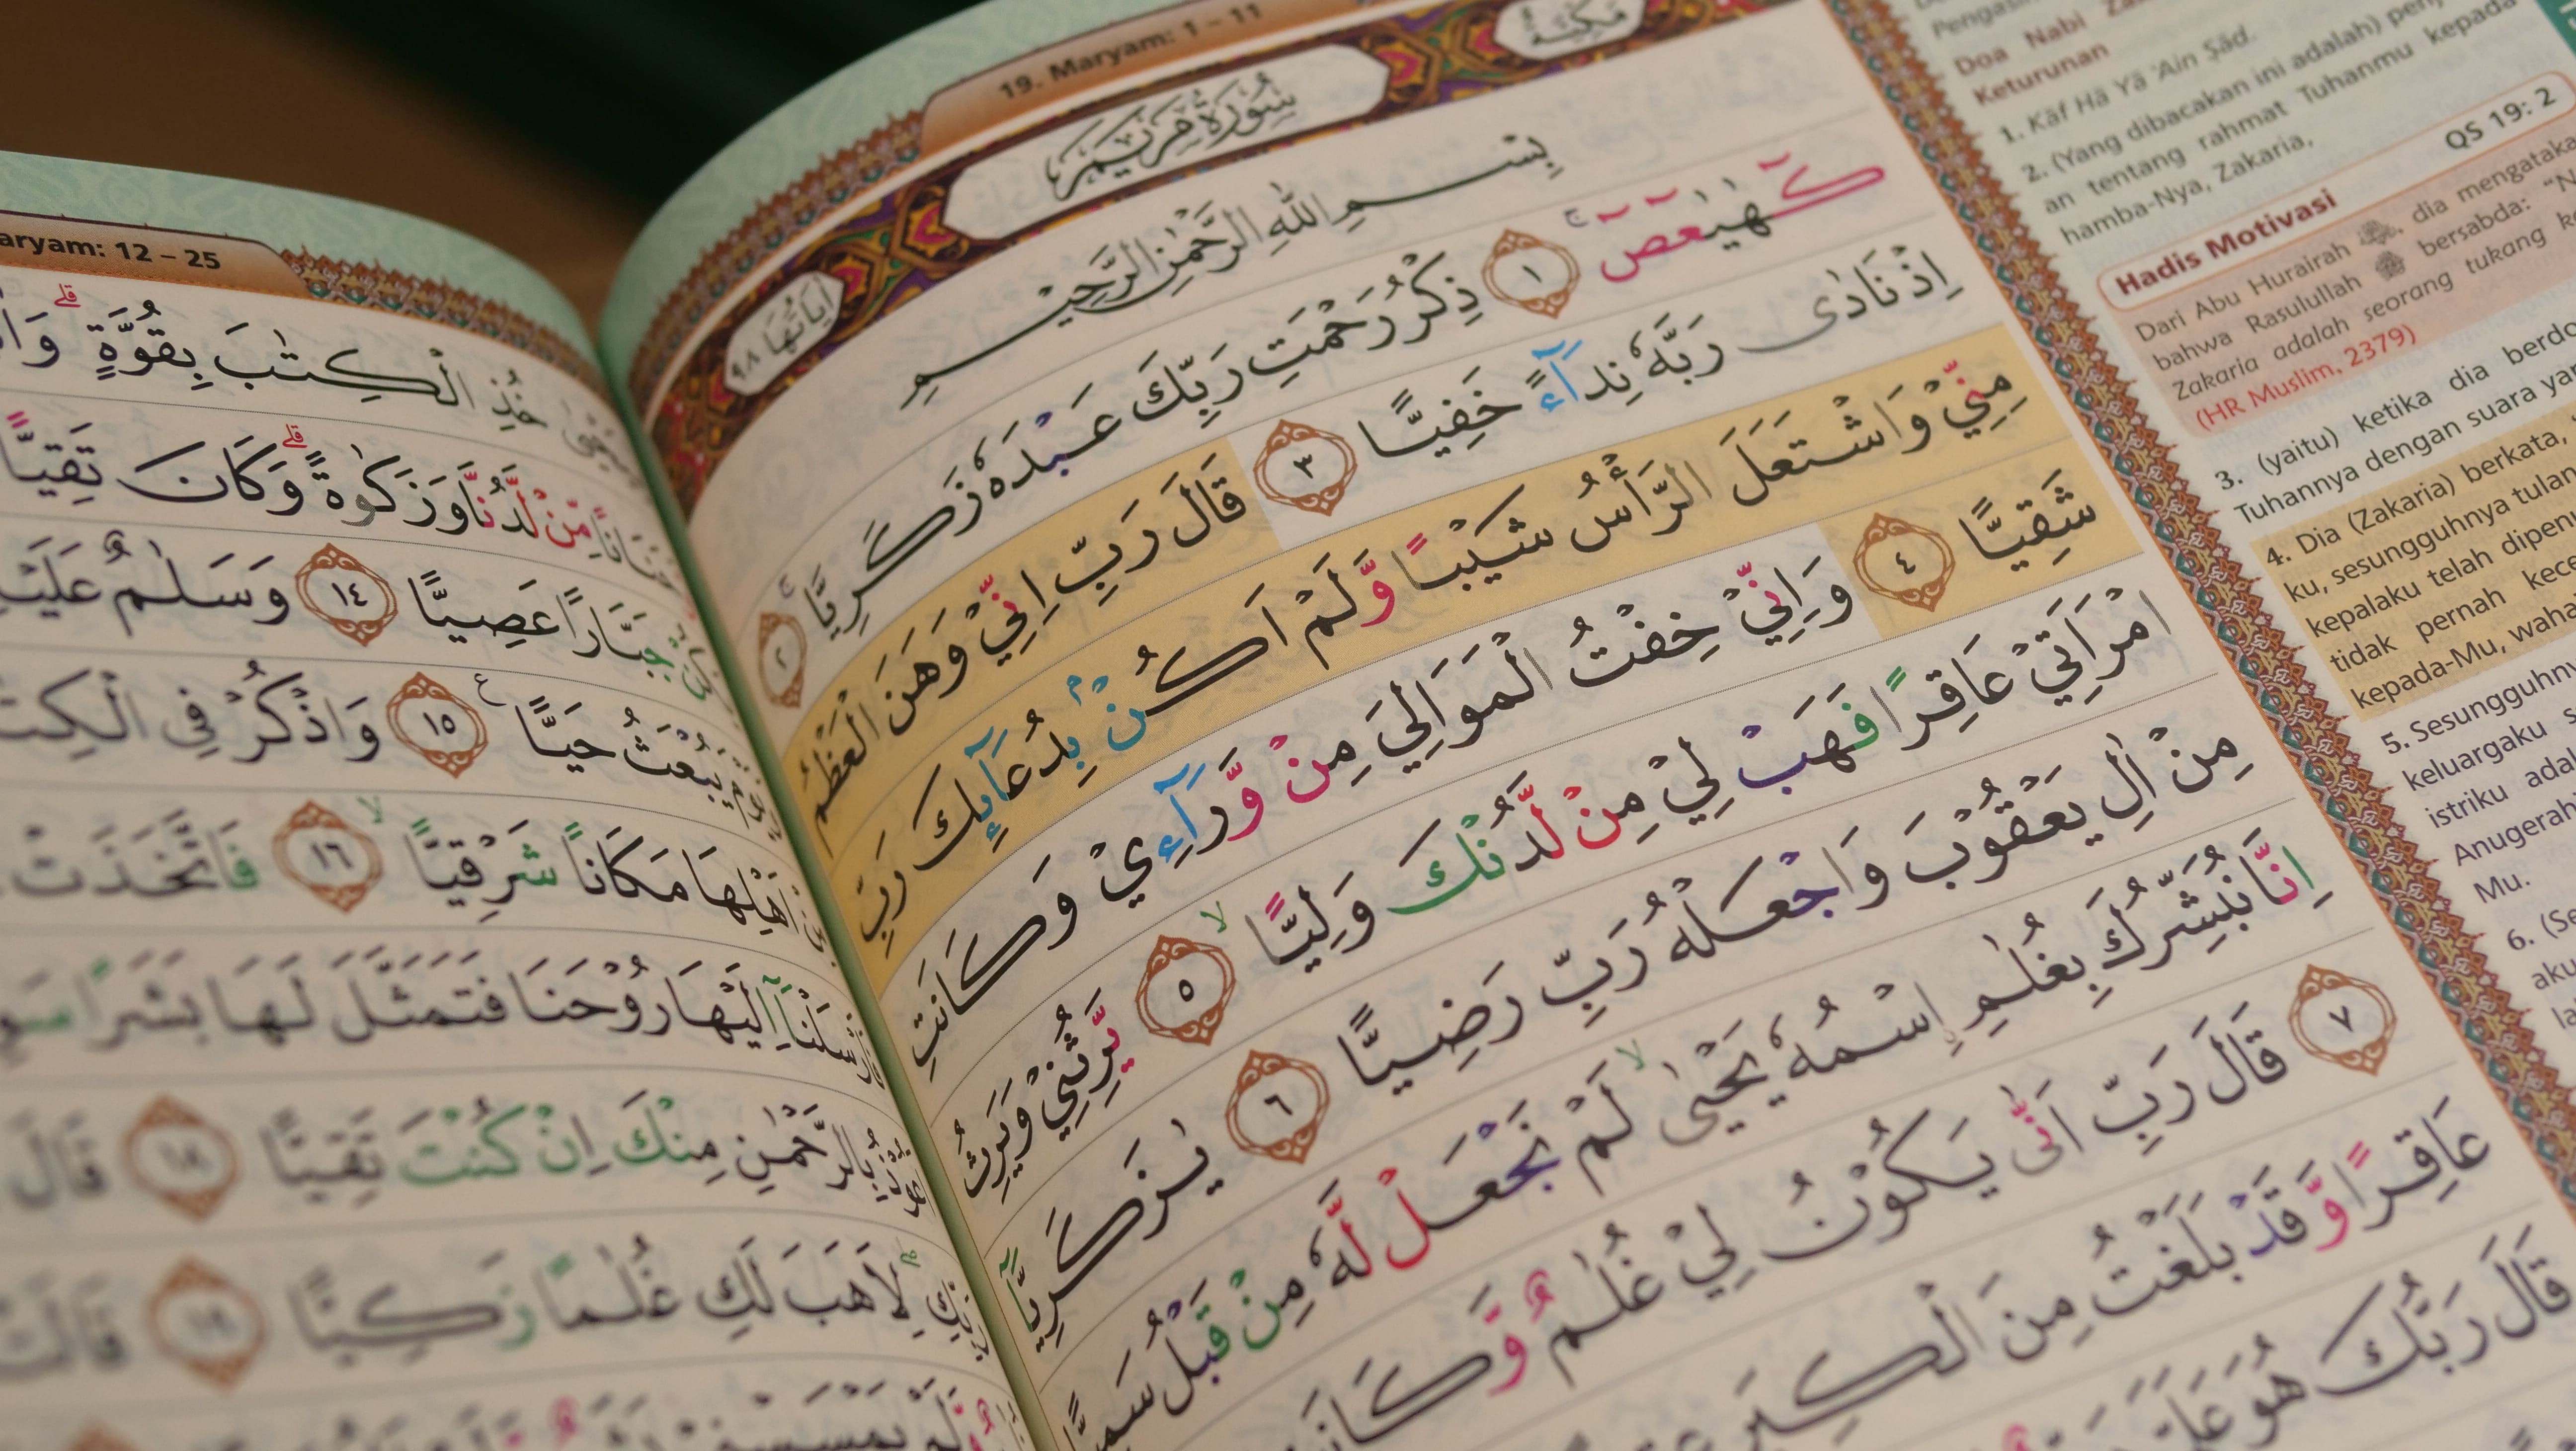 19. Maryam: 1 – 11
مَكِّيَّةٌ
سُوْرَةُ مَرْيَمَ
اٰيَاتُهَا ٩٨
بِسْمِ اللّٰهِ الرَّحْمٰنِ الرَّحِيْمِ
كۤهٰيٰعۤصۤ ۚ ١ ذِكْرُ رَحْمَتِ رَبِّكَ عَبْدَهٗ زَكَرِيَّا ۚ ٢
اِذْ نَادٰى رَبَّهٗ نِدَاۤءً خَفِيًّا ٣ قَالَ رَبِّ اِنِّيْ وَهَنَ الْعَظْمُ
مِنِّيْ وَاشْتَعَلَ الرَّأْسُ شَيْبًا وَّلَمْ اَكُنْۢ بِدُعَاۤىِٕكَ رَبِّ
شَقِيًّا ٤ وَاِنِّيْ خِفْتُ الْمَوَالِيَ مِنْ وَّرَاۤءِيْ وَكَانَتِ
امْرَاَتِيْ عَاقِرًا فَهَبْ لِيْ مِنْ لَّدُنْكَ وَلِيًّا ۙ ٥ يَّرِثُنِيْ وَيَرِثُ
مِنْ اٰلِ يَعْقُوْبَ وَاجْعَلْهُ رَبِّ رَضِيًّا ٦ يٰزَكَرِيَّآ
اِنَّا نُبَشِّرُكَ بِغُلٰمِ ِۨاسْمُهٗ يَحْيٰىۙ لَمْ نَجْعَلْ لَّهٗ مِنْ قَبْلُ سَمِيًّا
٧ قَالَ رَبِّ اَنّٰى يَكُوْنُ لِيْ غُلٰمٌ وَّكَانَتِ
عَاقِرًا وَّقَدْ بَلَغْتُ مِنَ الْكِبَرِ
قَالَ رَبُّكَ هُوَ عَلَيَّ
aryam: 12 – 25
خُذِ الْكِتٰبَ بِقُوَّةٍ ۗ
مِّنْ لَّدُنَّا وَزَكٰوةً ۗ وَكَانَ تَقِيًّا
جَبَّارًا عَصِيًّا ١٤ وَسَلٰمٌ عَلَيْهِ
يُبْعَثُ حَيًّا ۚ ١٥ وَاذْكُرْ فِى الْكِتٰبِ
اَهْلِهَا مَكَانًا شَرْقِيًّا ۙ ١٦ فَاتَّخَذَتْ
اِلَيْهَا رُوْحَنَا فَتَمَثَّلَ لَهَا بَشَرًا
بِالرَّحْمٰنِ مِنْكَ اِنْ كُنْتَ تَقِيًّا ١٨ قَالَ
رَبِّكِ ۖ لِاَهَبَ لَكِ غُلٰمًا زَكِيًّا ١٩ قَالَتْ
Doa Nabi
Keturunan
1. Kāf Hā Yā 'Ain Ṣād.
2. (Yang dibacakan ini adalah)
an tentang rahmat Tuhanmu kepada
hamba-Nya, Zakaria,
QS 19: 2
Hadis Motivasi
Dari Abu Hurairah ؓ, dia mengataka
bahwa Rasulullah ﷺ bersabda:
Zakaria adalah seorang tukang
(HR Muslim, 2379)
3. (yaitu) ketika dia berdo
Tuhannya dengan suara yan
4. Dia (Zakaria) berkata,
ku, sesungguhnya tulan
kepalaku telah dipenu
tidak pernah kece
kepada-Mu, waha
5. Sesungguhny
keluargaku
istriku ada
Anugerah
Mu.
6. (Se
aku